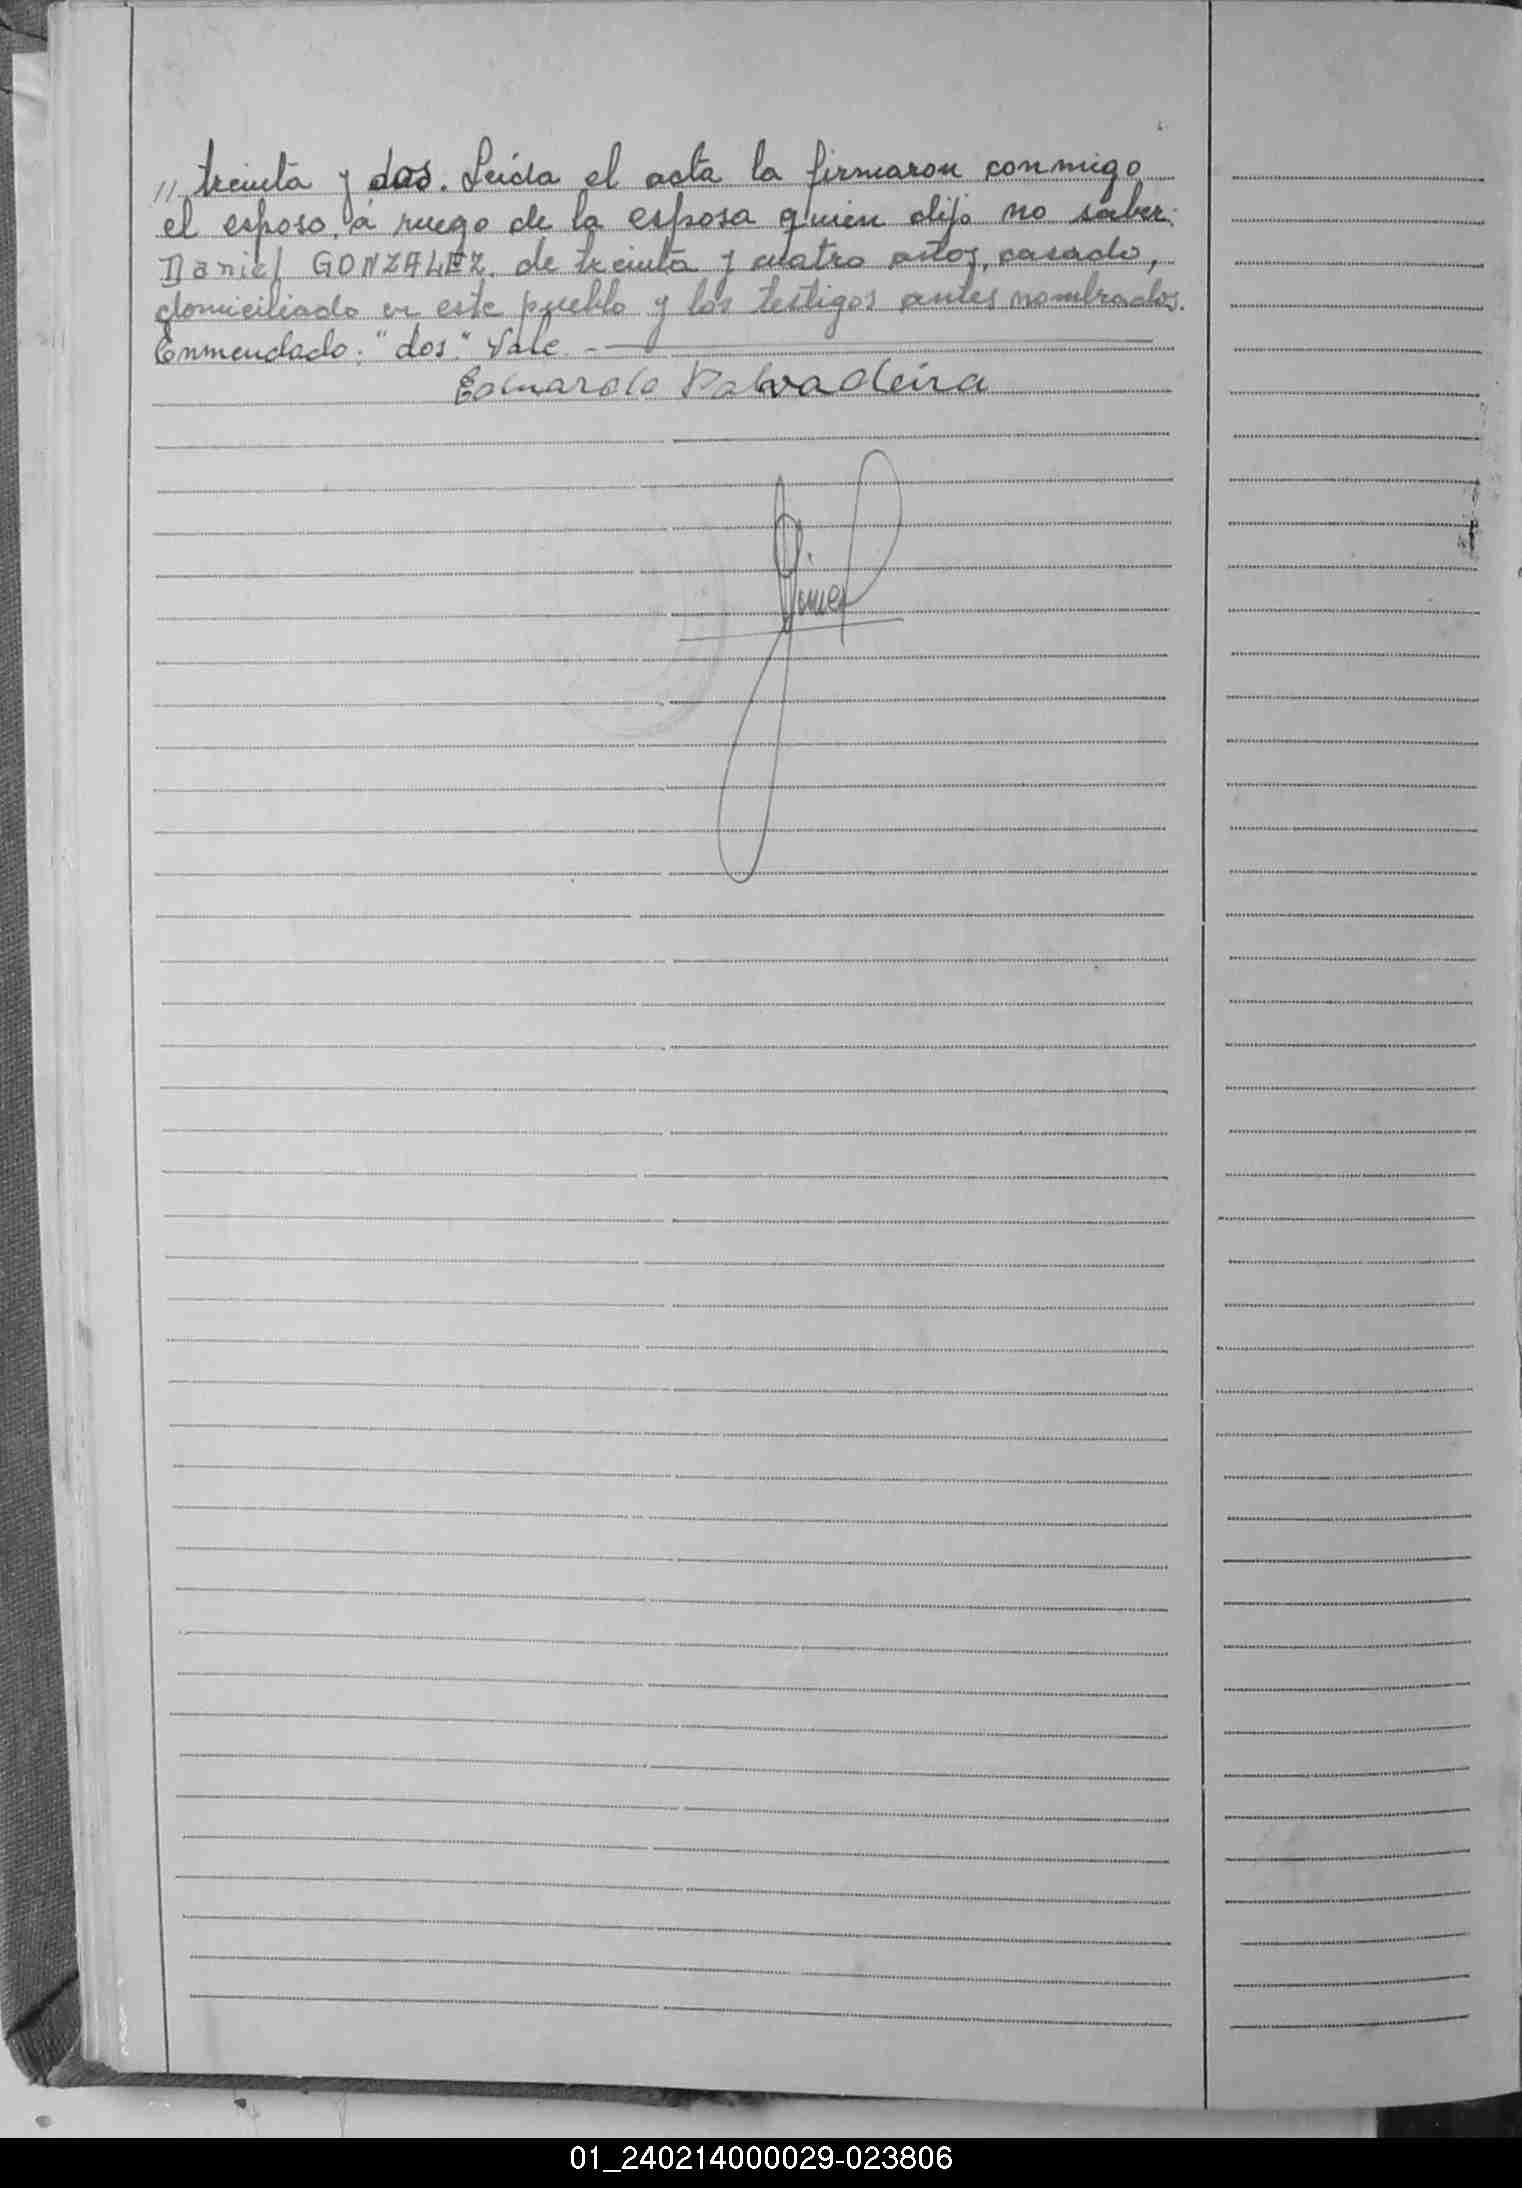 // treinta y dos. Leída el acta la firmaron conmigo
el esposo, á ruego de la esposa quien dijo no saber:
Daniel GONZALEZ, de treinta y cuatro años, casado,
domiciliado en este pueblo y los testigos antes nombrados.
Enmendado: "dos." Vale. -
Eduardo Valvadeira
01_240214000029-023806